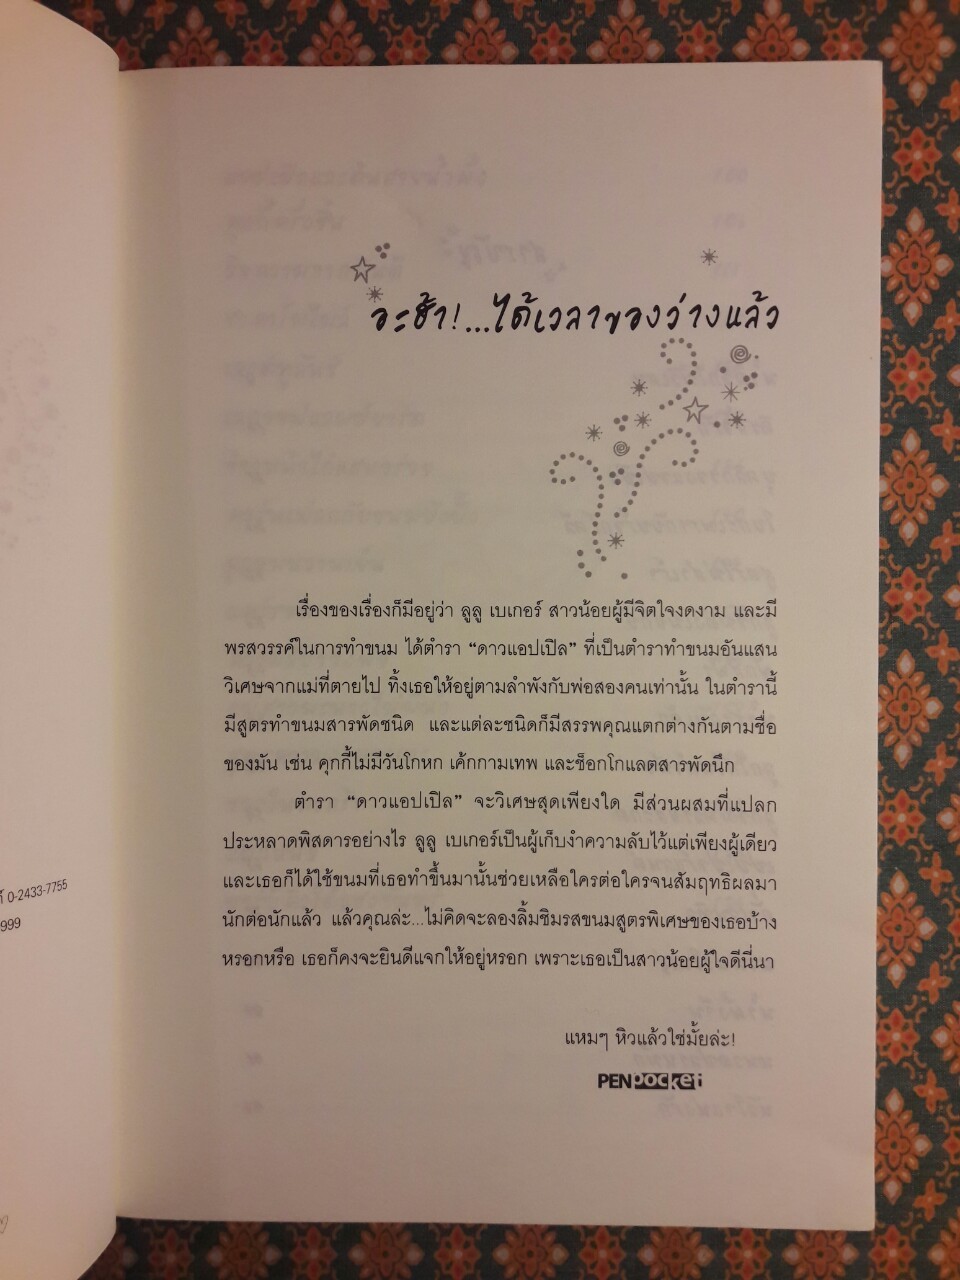 อะฮ้า!...ได้เวลาของว่างแล้ว
เรื่องของเรื่องก็มีอยู่ว่า ลูลู เบเกอร์ สาวน้อยผู้มีจิตใจงดงาม และมี
พรสวรรค์ในการทำขนม ได้ตำรา “ดาวแอปเปิล” ที่เป็นตำราทำขนมอันแสน
วิเศษจากแม่ที่ตายไป ทิ้งเธอให้อยู่ตามลำพังกับพ่อสองคนเท่านั้น ในตำรานี้
มีสูตรทำขนมสารพัดชนิด และแต่ละชนิดก็มีสรรพคุณแตกต่างกันตามชื่อ
ของมัน เช่น คุกกี้ไม่มีวันโกหก เค้กกามเทพ และช็อกโกแลตสารพัดนึก
ตำรา “ดาวแอปเปิล” จะวิเศษสุดเพียงใด มีส่วนผสมที่แปลก
ประหลาดพิสดารอย่างไร ลูลู เบเกอร์เป็นผู้เก็บงำความลับไว้แต่เพียงผู้เดียว
และเธอก็ได้ใช้ขนมที่เธอทำขึ้นมานั้นช่วยเหลือใครต่อใครจนสัมฤทธิผลมา
นักต่อนักแล้ว แล้วคุณล่ะ...ไม่คิดจะลองลิ้มชิมรสขนมสูตรพิเศษของเธอบ้าง
หรอกหรือ เธอก็คงจะยินดีแจกให้อยู่หรอก เพราะเธอเป็นสาวน้อยผู้ใจดีนี่นา
แหมๆ หิวแล้วใช่มั้ยล่ะ!
PENpocket
0-2433-7755
999